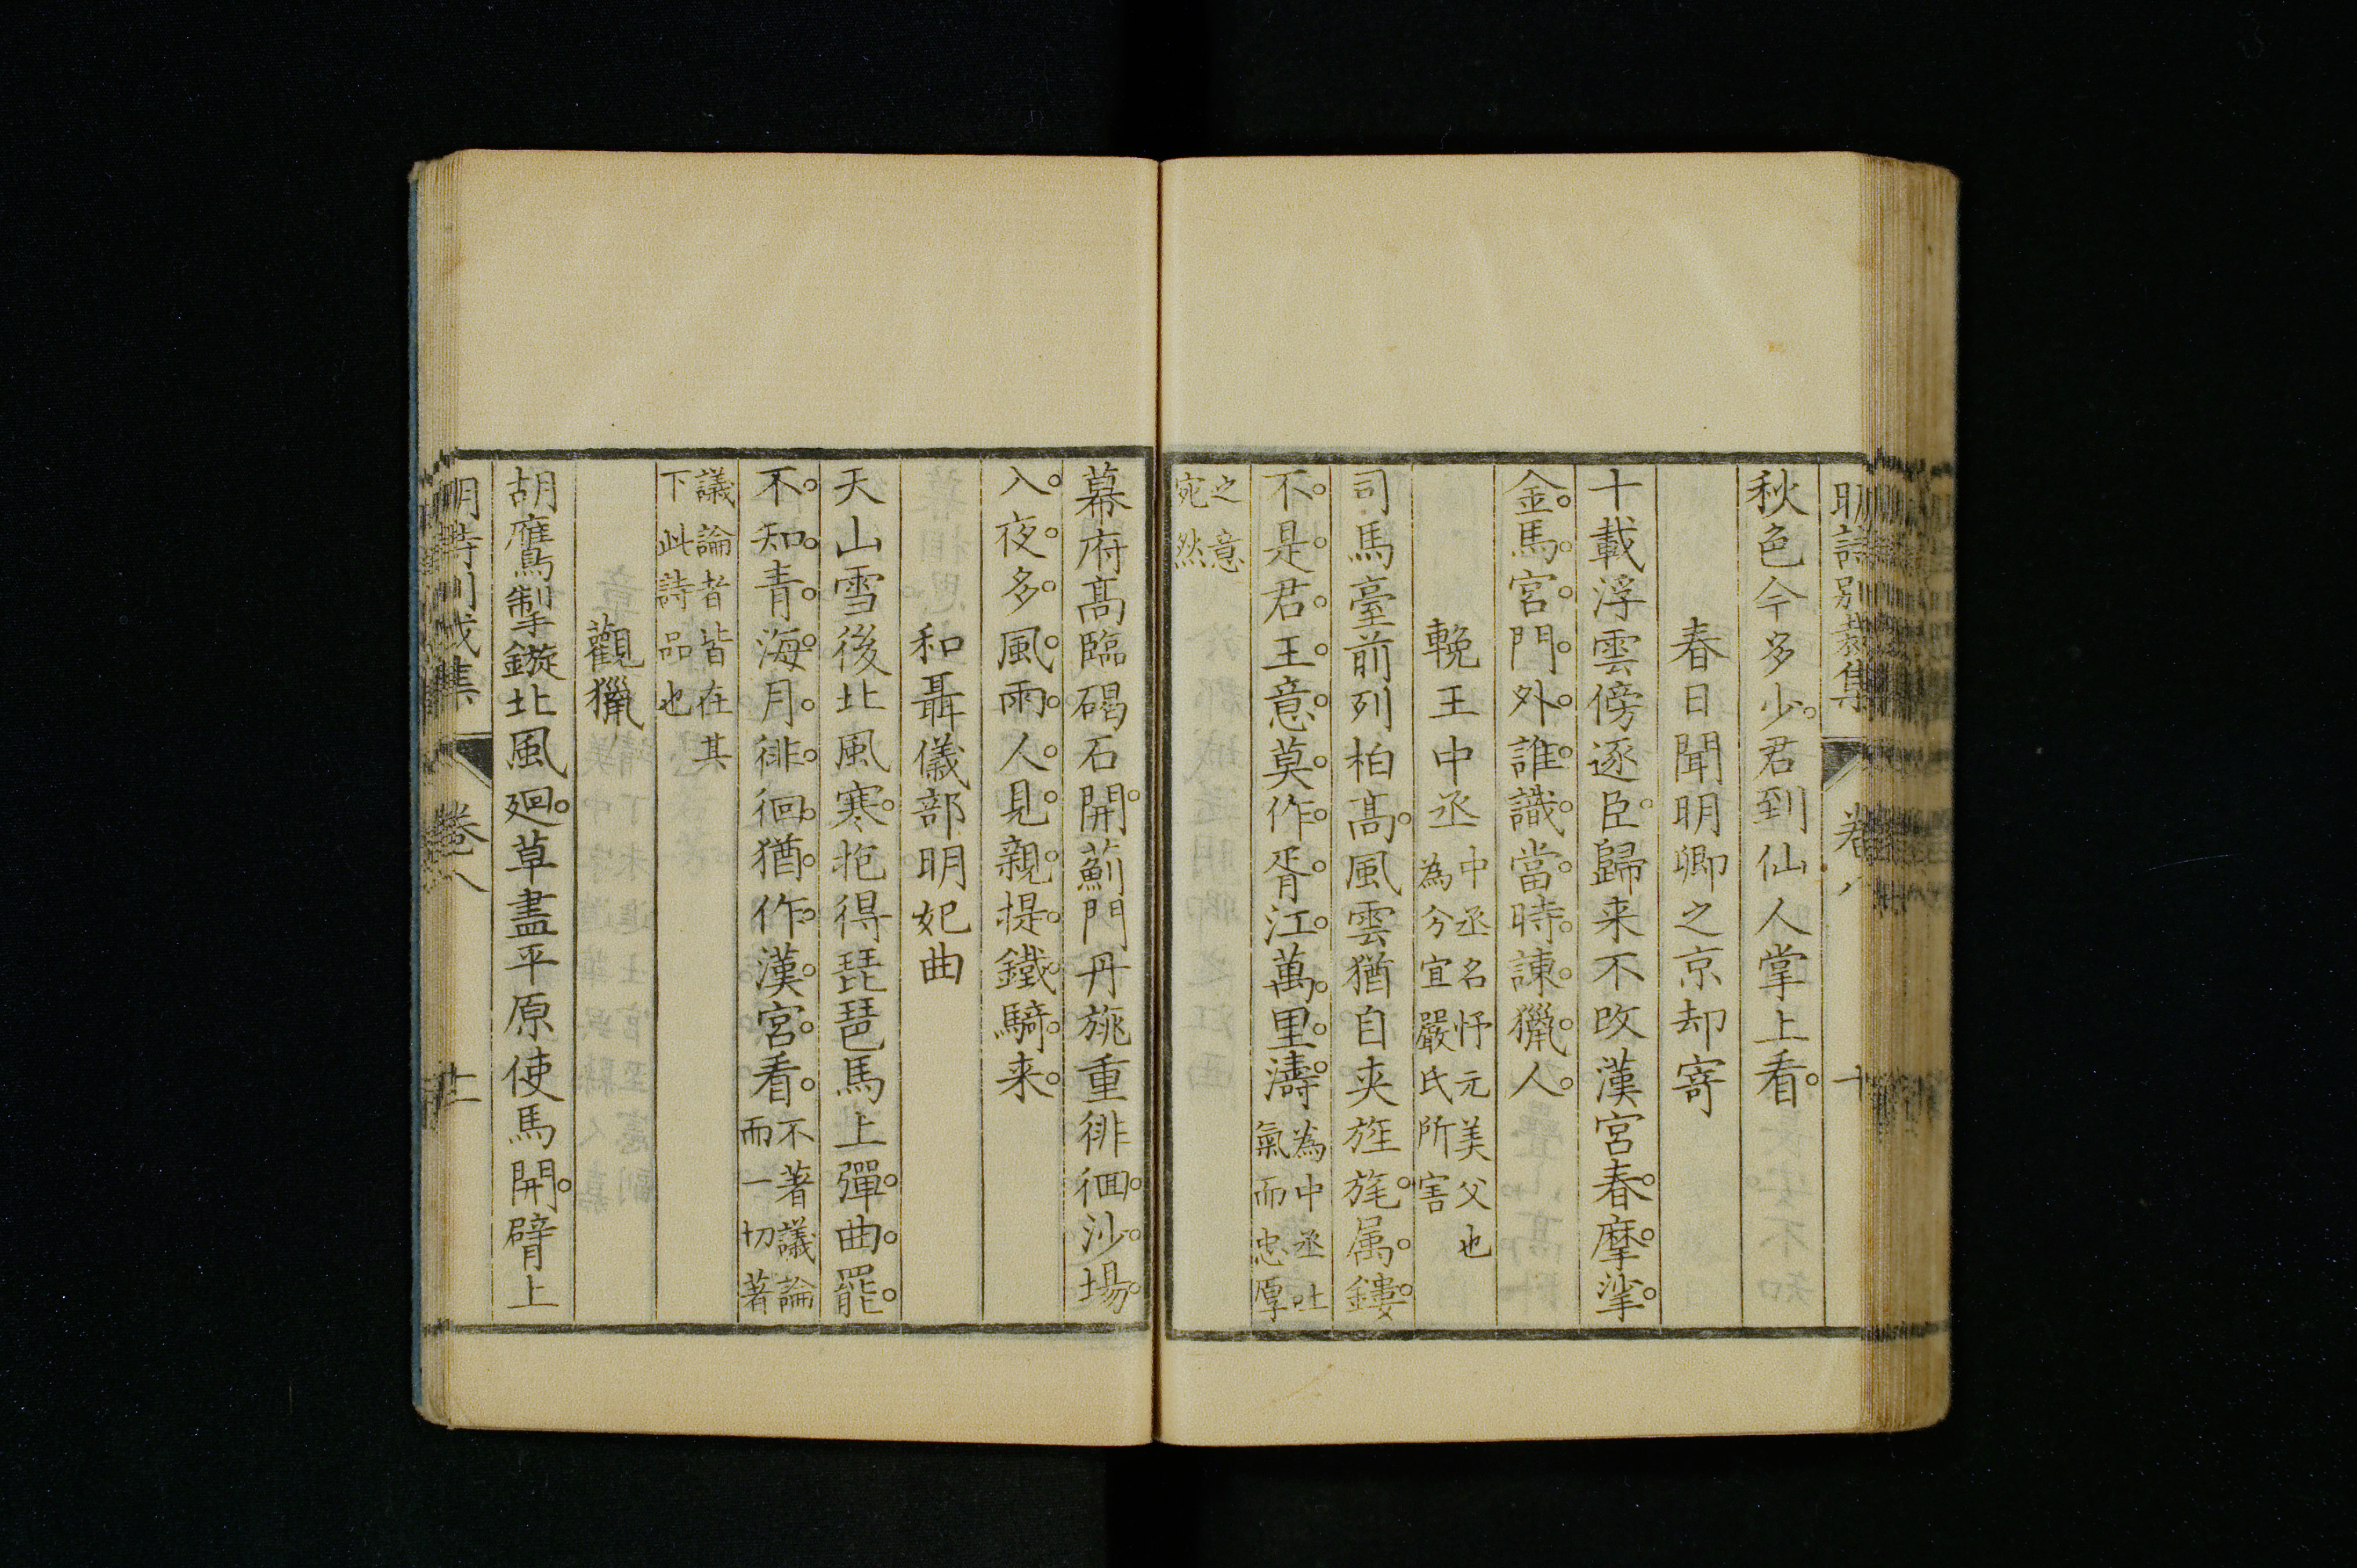 明詩別裁集 卷八 十
秋色今多少君到仙人掌上看
春日聞明卿之京却寄
十載浮雲傍逐臣歸来不改漢宮春摩挲
金馬宮門外誰識當時諫獵人
輓王中丞中丞名忬元美父也為分宜嚴氏所害
司馬臺前列柏髙風雲猶自夾旌旄属鏤
不是君王意莫作胥江萬里濤為中丞吐氣而忠厚
之意宛然
幕府髙臨碣石開薊門丹旐重徘徊沙場
入夜多風雨人見親提鐵騎来
和聶儀部明妃曲
天山雪後北風寒抱得琵琶馬上彈曲罷
不知青海月徘徊猶作漢宮看不著議論而一切著
議論者皆在其下此詩品也
觀獵
胡鷹掣鏇北風廻草盡平原使馬開臂上
明詩別裁集 卷八 十一